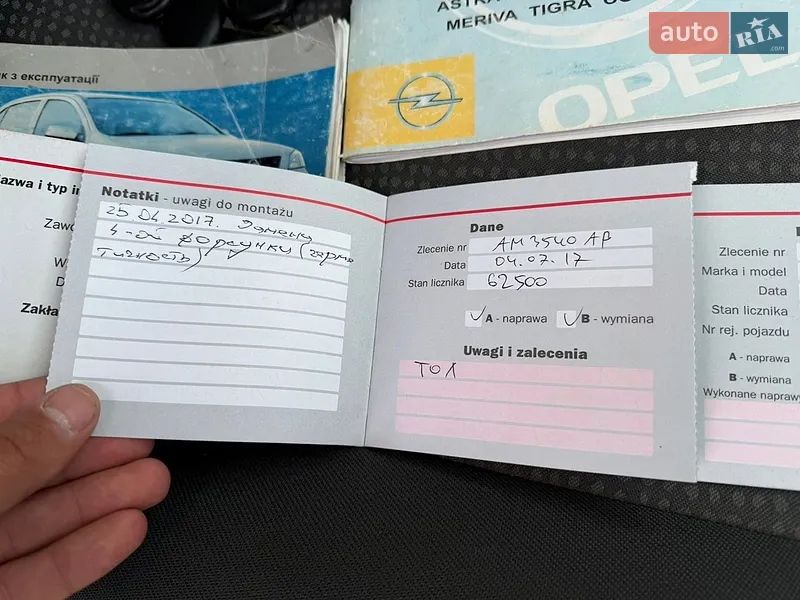 ASTRA
MERIVA TIGRA
auto RIA
.com
OPEL
к з експлуатації
azwa i typ
Zakła
Notatki - uwagi do montażu
25 04.2017. Замена
4-ой форсунки (герме
тичность)
Dane
Zlecenie nr AM3540AP
Data 04.07.17
Stan licznika 62500
A - naprawa B - wymiana
Uwagi i zalecenia
ТО1
Zlecenie nr
Marka i model
Data
Stan licznika
Nr rej. pojazdu
A - naprawa
B - wymiana
Wykonane naprawy